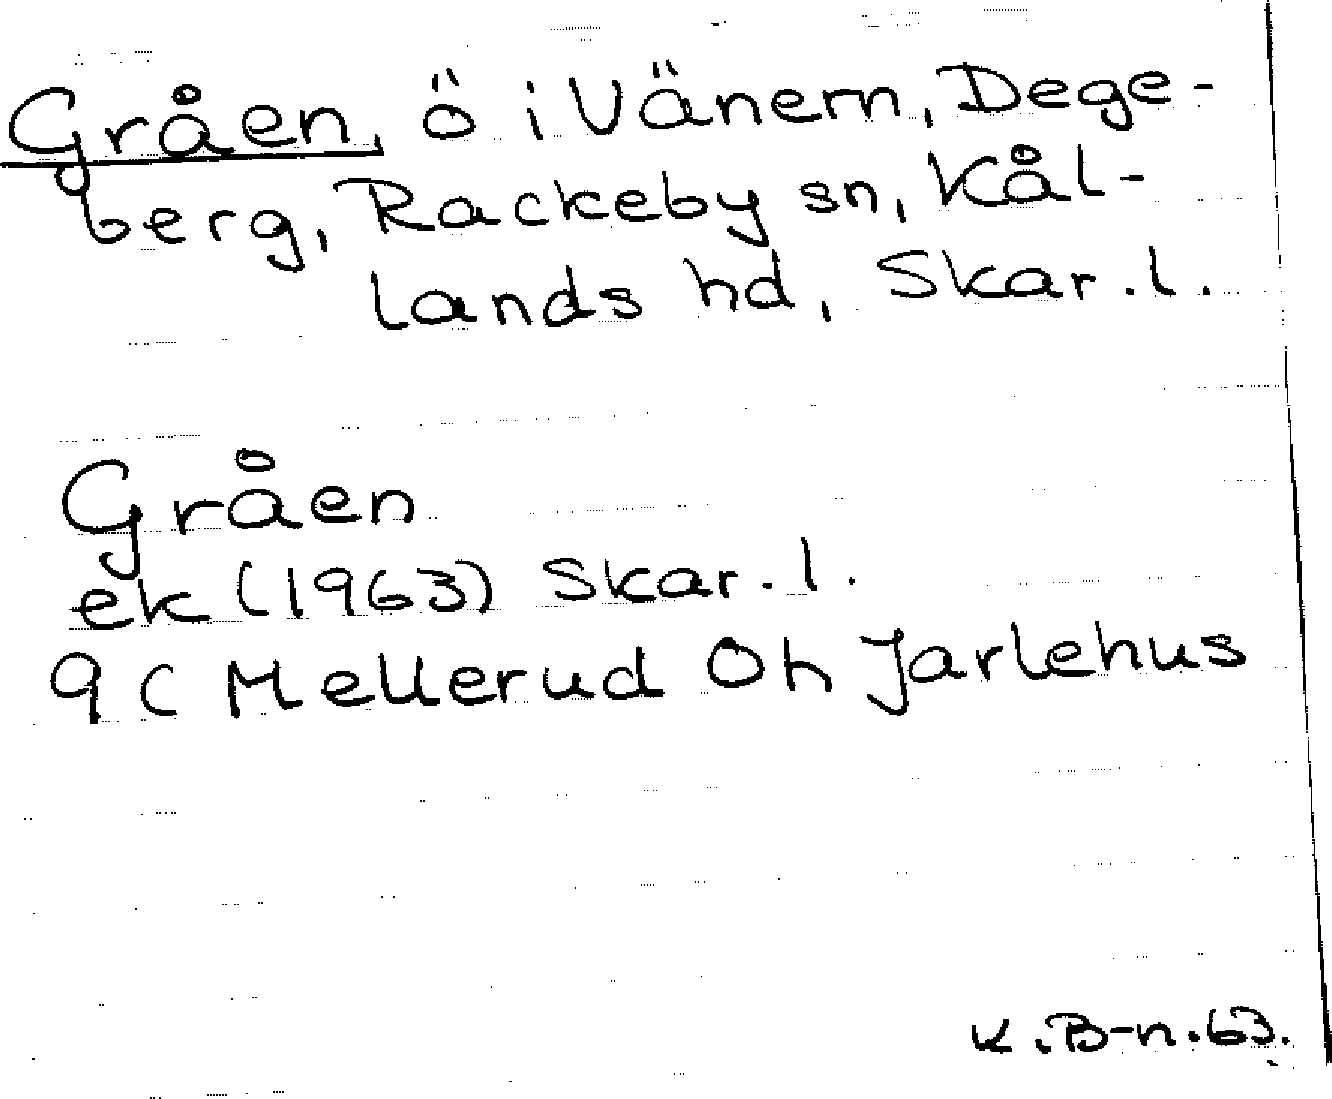 Gråen, ö i Vänern, Dege-
berg, Rackeby sn, Kål-
lands hd, Skar.l.
Gråen
ek (1963) Skar.l.
9 C Mellerud Oh Jarlehus
K.B-n.63.